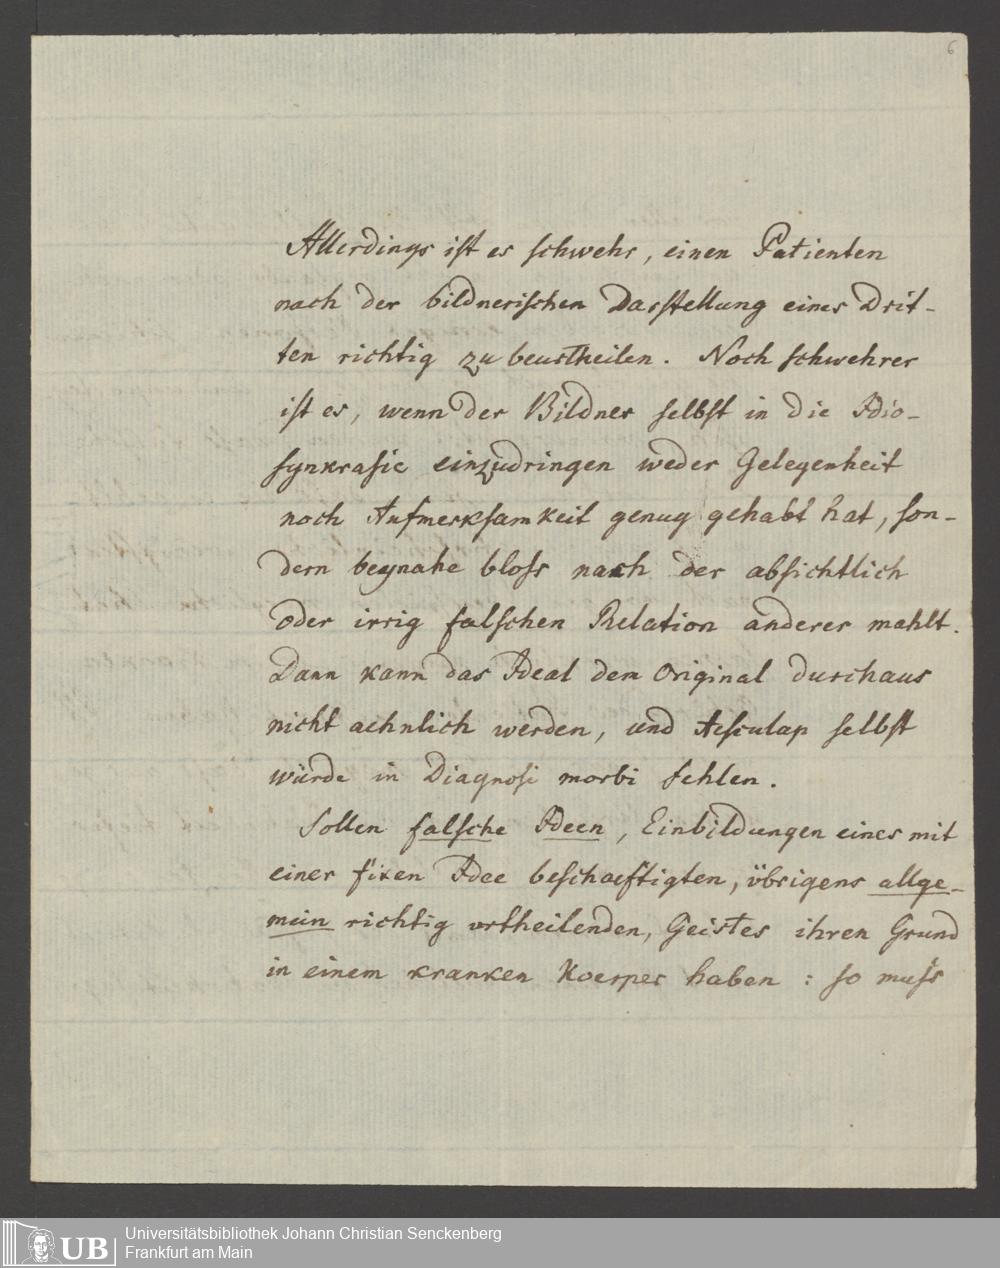 6
Allerdings ist es schwehr, einen Patienten
nach der bildnerischen Darstellung eines Drit-
ten richtig zu beurtheilen. Noch schwehrer
ist es, wenn der Bildner selbst in die Idio-
synkrasie einzudringen weder Gelegenheit
noch Aufmerksamkeit genug gehabt hat, son-
dern beynahe bloss nach der absichtlich
oder irrig falschen Relation anderer mahlt.
Dann kann das Ideal dem Original durchaus
nicht aehnlich werden, und Aesculap selbst
würde in Diagnosi morbi fehlen.
Sollen falsche Ideen, Einbildungen eines mit
einer fixen Idee beschaeftigten, übrigens allge-
mein richtig urtheilenden, Geistes ihren Grund
in einem kranken Koerper haben: so muss
UB
Universitätsbibliothek Johann Christian Senckenberg
Frankfurt am Main